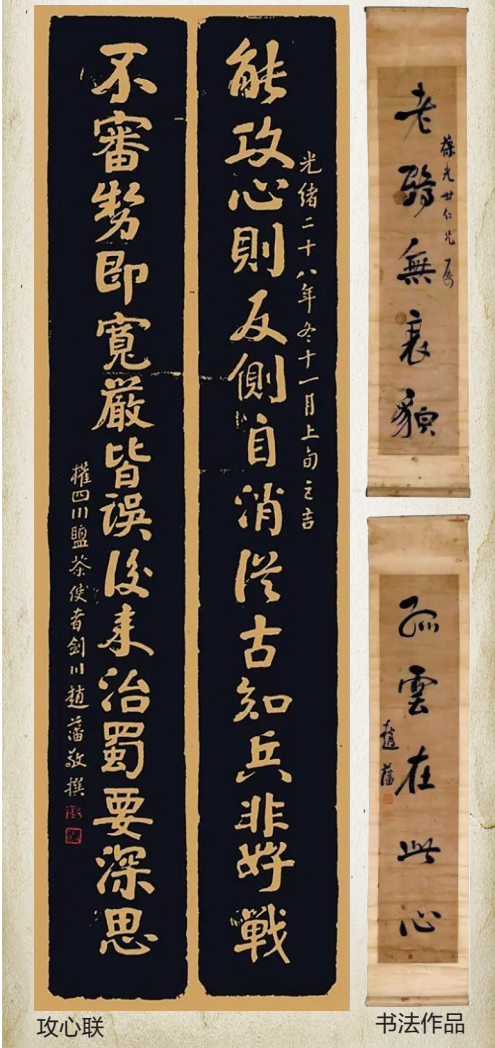 能攻心則反側自消從古知兵非好戰
光緒二十八年冬十一月上旬之吉
不審勢即寬嚴皆誤後來治蜀要深思
權四川鹽茶使者劍川趙藩敬撰
葆光世仁兄屬
老鶴無衰貌
孤雲在此心
趙藩
攻心联
书法作品